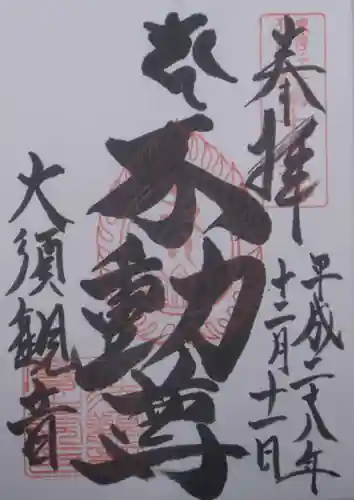 奉拝
平成二十八年
十二月十一日
不動尊
大須観音